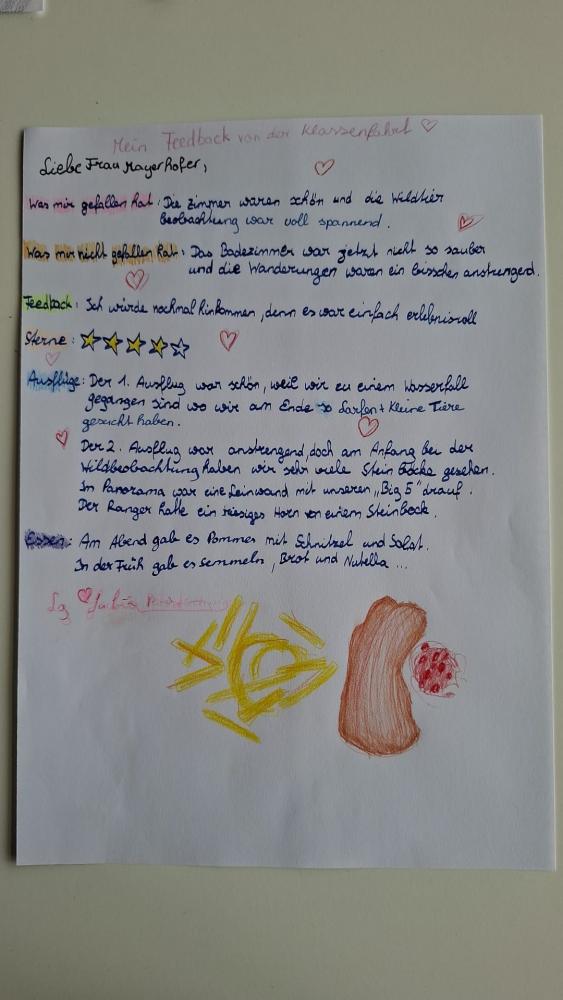 Mein Feedback von der Klassenfahrt
Liebe Frau Mayerhofer,
Was mir gefallen hat: Die Zimmer waren schön und die Wildtier
beobachtung war voll spannend.
Was mir nicht gefallen hat: Das Badezimmer war jetzt nicht so sauber
und die Wanderungen waren ein bisschen anstrengend.
Feedback: Ich würde nochmal hinkommen, denn es war einfach erlebnisvoll
Sterne:
Ausflüge: Der 1. Ausflug war schön, weil wir zu einem Wasserfall
gegangen sind wo wir am Ende Larfen + kleine Tiere
gesucht haben.
Der 2. Ausflug war anstrengend, doch am Anfang bei der
Wildbeobachtung haben wir sehr viele Stein Böcke gesehen.
Im Panorama war eine Leinwand mit unseren „Big 5" drauf.
Der Ranger hatte ein riesiges Horn von einem Steinbock.
Essen: Am Abend gab es Pommes mit Schnitzel und Salat.
In der Früh gab es Semmeln, Brot und Nutella ...
Lg